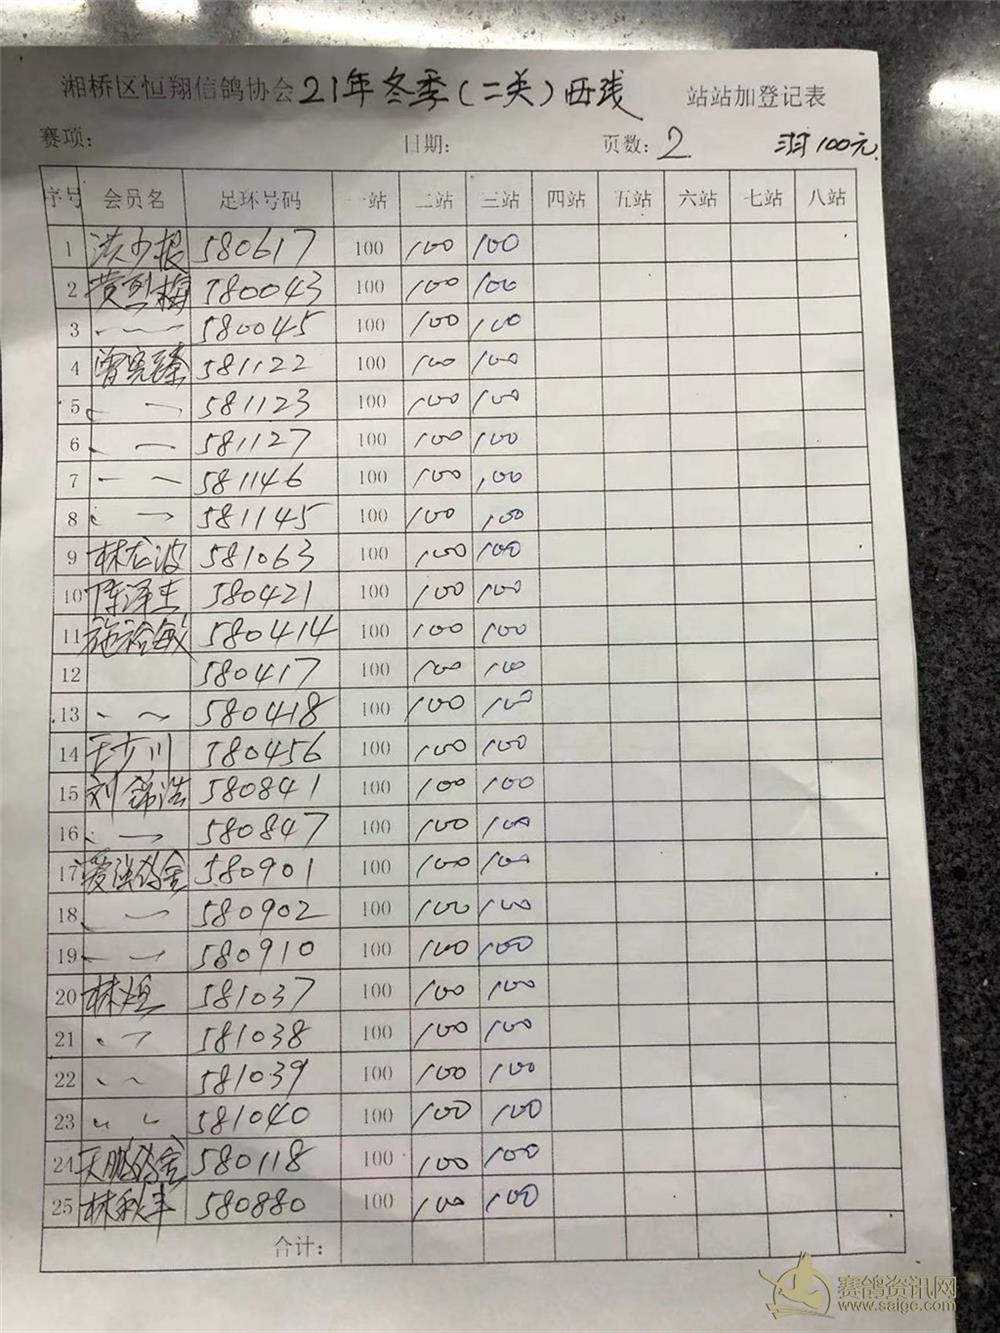 湘桥区恒翔信鸽协会21年冬季(二关)西线 站站加登记表
赛项: 日期: 页数: 2 100元
序号 会员名 足环号码 一站 二站 三站 四站 五站 六站 七站 八站
1 洪少根 580617 100 100 100
2 黄烈梅 580043 100 100 100
3 580045 100 100 100
4 曾宪臻 581122 100 100 100
5 581123 100 100 100
6 581127 100 100 100
7 581146 100 100 100
8 581145 100 100 100
9 林龙波 581063 100 100 100
10 陈泽生 580421 100 100 100
11 施裕敏 580414 100 100 100
12 580417 100 100 100
13 580418 100 100 100
14 王少川 580456 100 100 100
15 刘锦浩 580841 100 100 100
16 580847 100 100 100
17 爱强鸽舍 580901 100 100 100
18 580902 100 100 100
19 580910 100 100 100
20 林烜 581037 100 100 100
21 581038 100 100 100
22 581039 100 100 100
23 581040 100 100 100
24 天鹏鸽舍 580118 100 100 100
25 林秋丰 580880 100 100 100
合计:
赛鸽资讯网
www.saige.com